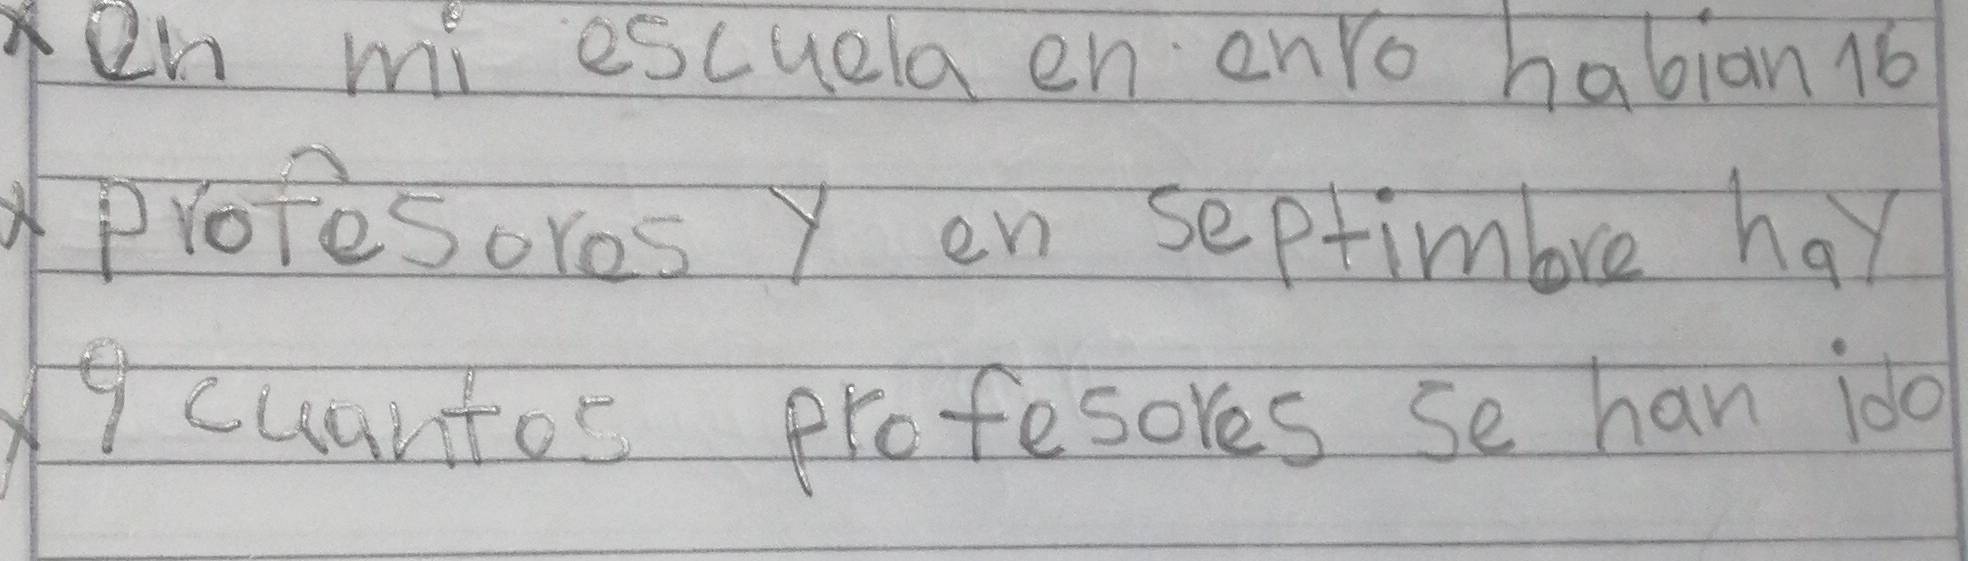 en mi escuela en enro habian 16
profesores y en septimbre hay
9 cuantos profesores se han ido